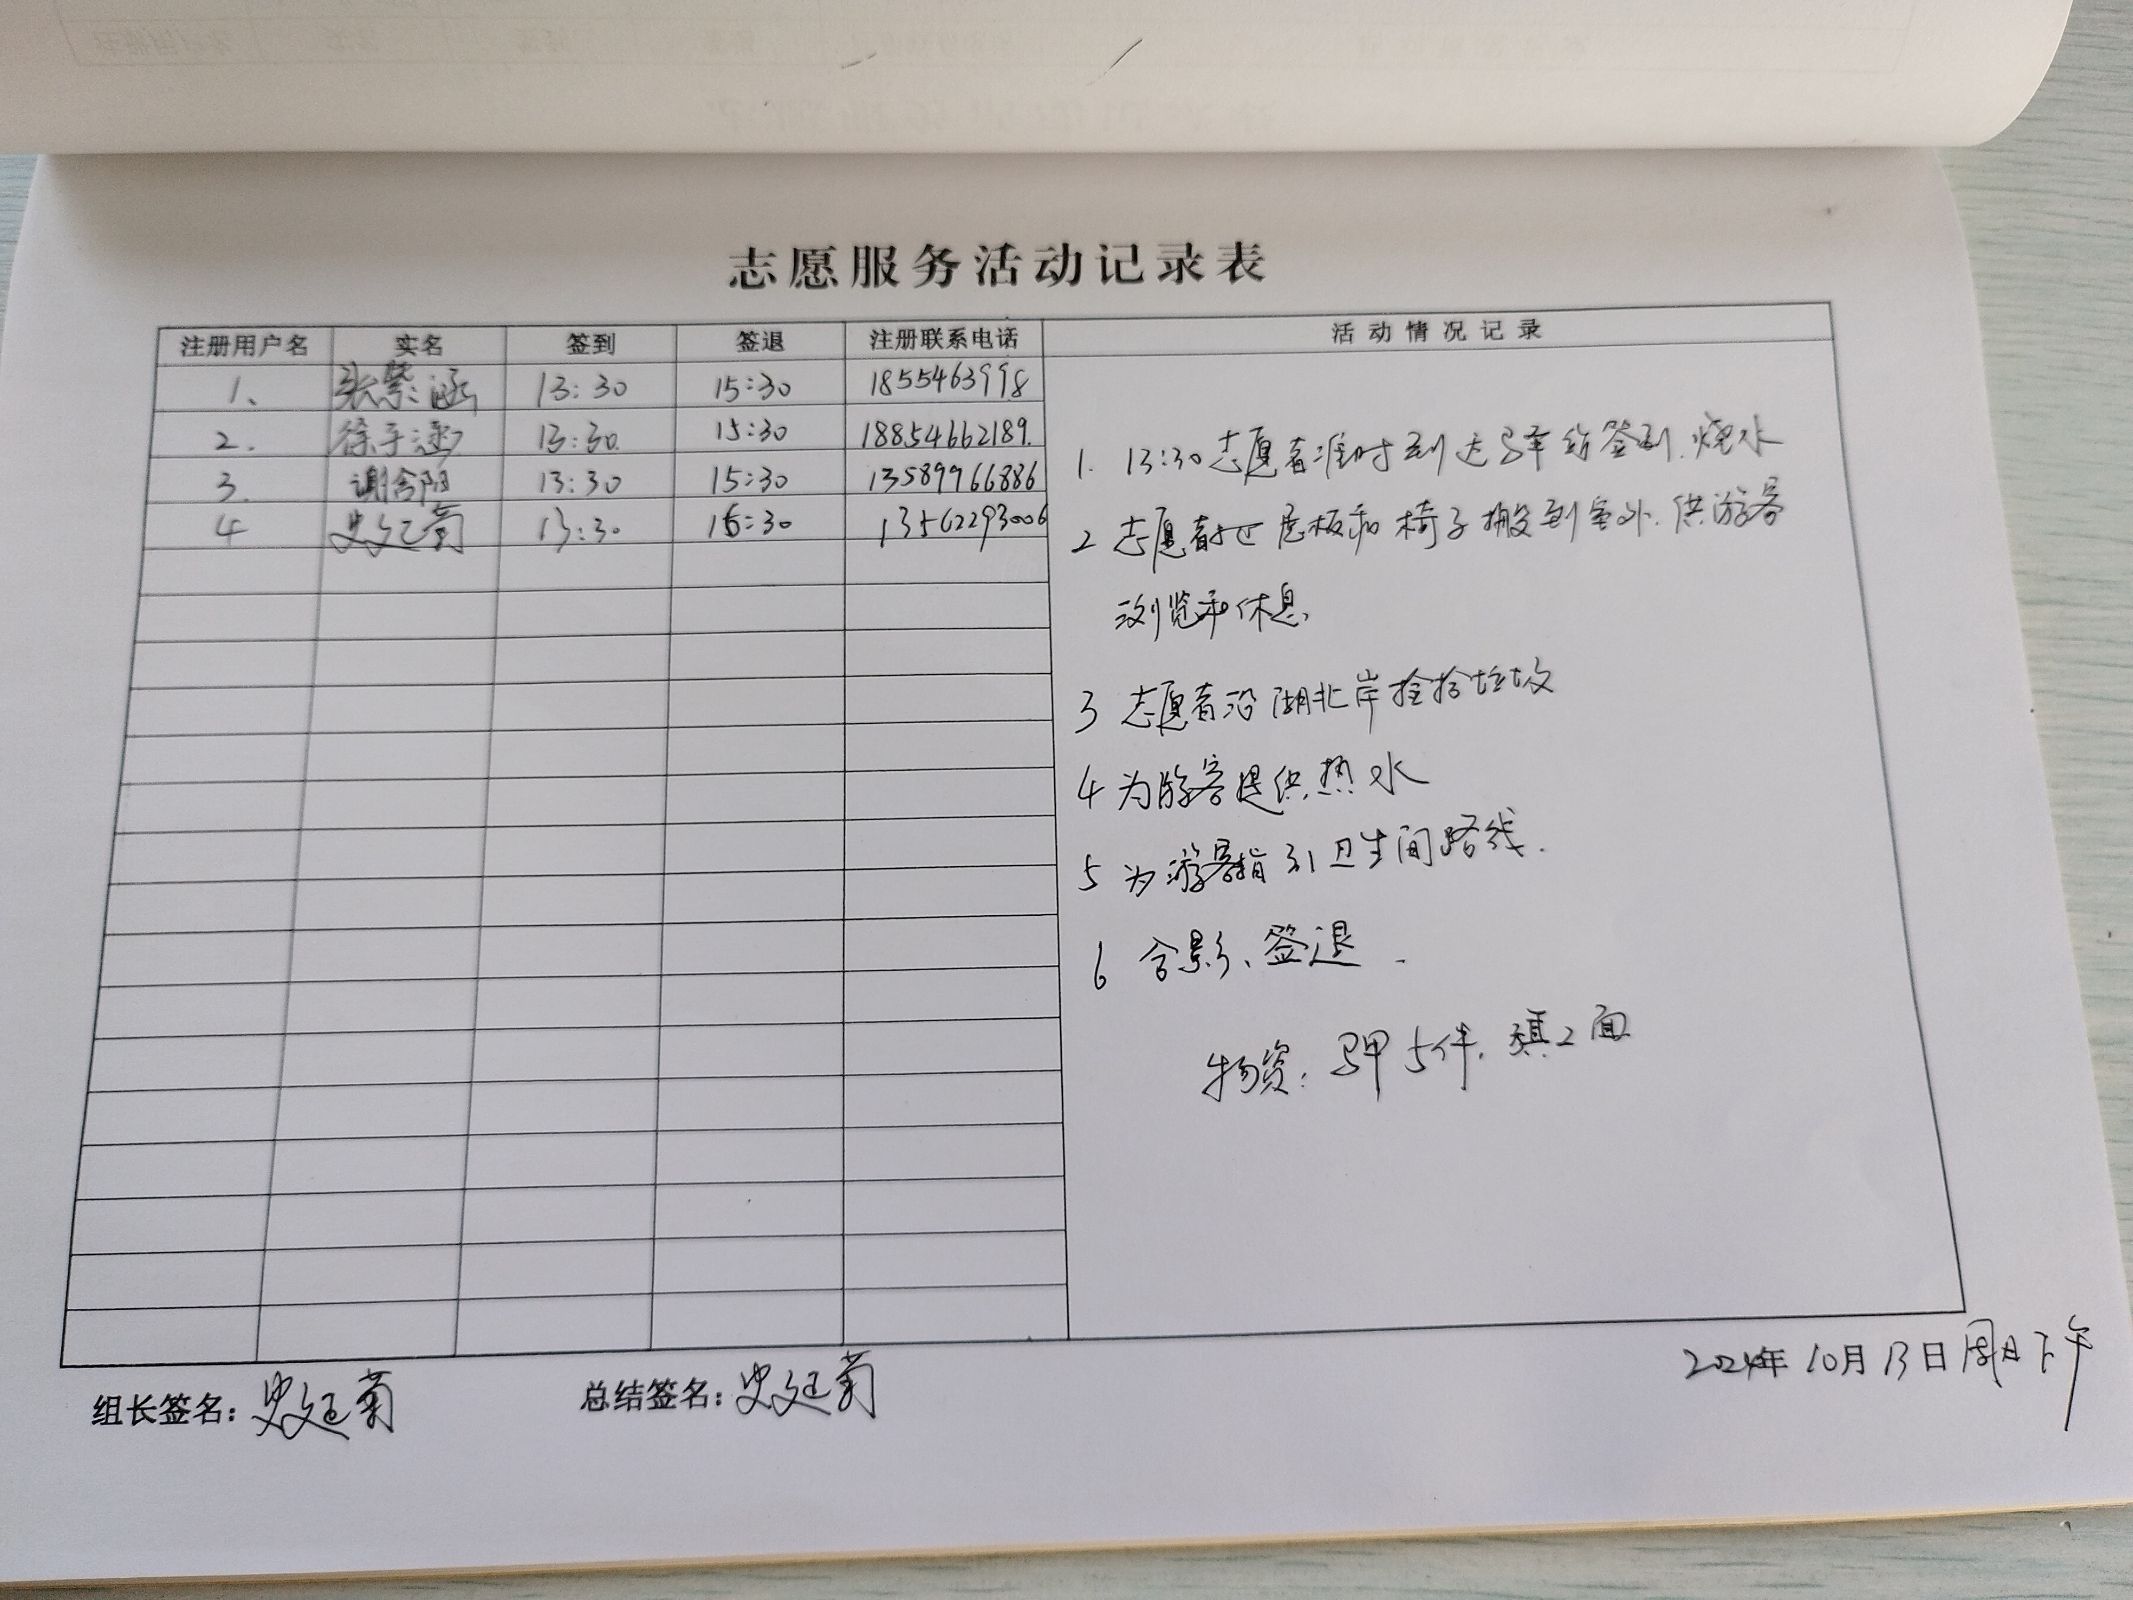 志愿服务活动记录表
注册用户名 实名 签到 签退 注册联系电话 活动情况记录
1、 张紫涵 13:30 15:30 1855463998
2. 徐子涵 13:30. 15:30 18854662189.
3. 谢含阳 13:30 15:30 13589966886
4 史廷菊 13:30 16:30 13562293006
1. 13:30志愿者准时到达驿站签到.烧水
2 志愿者把展板和椅子搬到室外.供游客
浏览和休息.
3 志愿者沿湖北岸捡拾垃圾
4 为游客提供热水
5 为游客指引卫生间路线.
6 合影、签退.
物资:马甲5件.旗2面
2024年10月13日周日下午
组长签名:史廷菊 总结签名:史廷菊